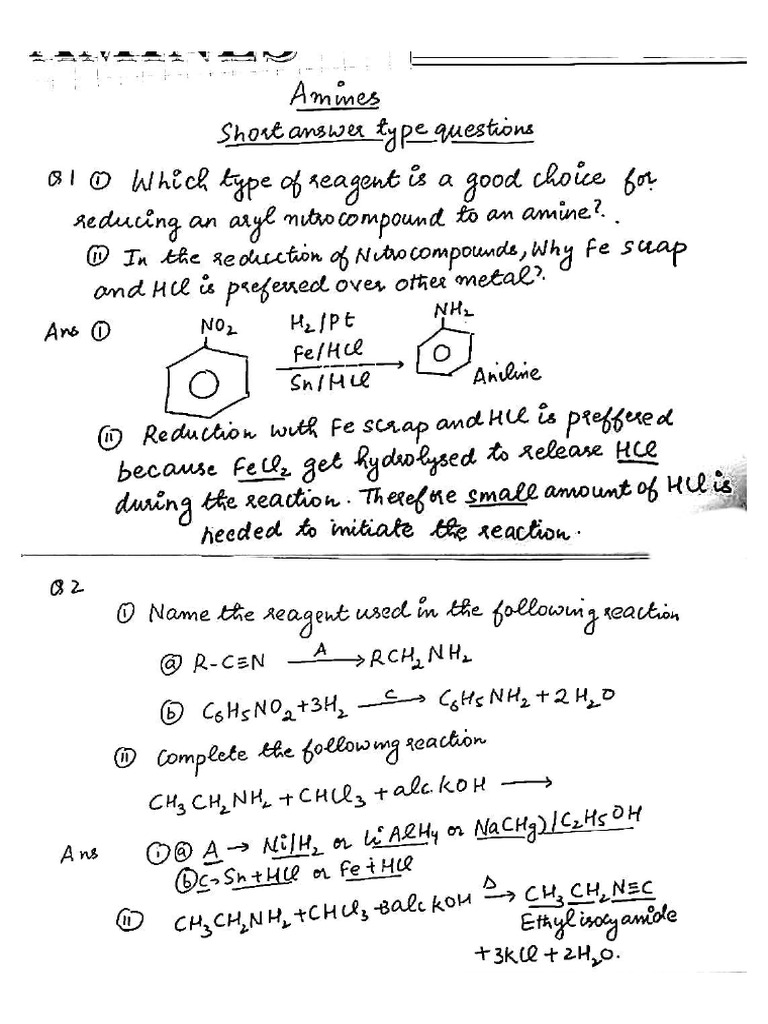 AMINES
Amines
Short answer type questions
Q1 (i) Which type of reagent is a good choice for
reducing an aryl nitrocompound to an amine?.
(ii) In the reduction of Nitrocompounds, Why Fe scrap
and HCl is preferred over other metal?
Ans (i) NO2 H2/Pt NH2
Fe/HCl
Sn/HCl Aniline
(ii) Reduction with Fe scrap and HCl is preffered
because FeCl2 get hydrolysed to release HCl
during the reaction. Therefore small amount of HCl is
needed to initiate the reaction.
Q2
(i) Name the reagent used in the following reaction
(a) R-C≡N —A→ RCH2NH2
(b) C6H5NO2+3H2 —C→ C6H5NH2+2H2O
(ii) Complete the following reaction
CH3CH2NH2 + CHCl3 + alc.KOH ⟶
Ans (i) (a) A → Ni/H2 or LiAlH4 or Na(Hg)/C2H5OH
(b) C→ Sn+HCl or Fe+HCl
(ii) CH3CH2NH2+CHCl3+3alc KOH —Δ→ CH3CH2N≡C
Ethyl isocyamide
+3KCl+2H2O.